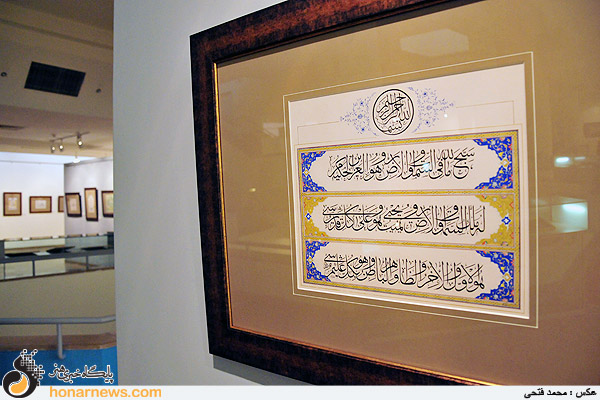 بسم الله الرحمن الرحيم
سبح لله ما في السموات والارض وهو العزيز الحكيم
له ملك السموات والارض يحيي ويميت وهو على كل شيء قدير
هو الاول والاخر والظاهر والباطن وهو بكل شيء عليم
پایگاه خبری هنر
honarnews.com
عکس : محمد فتحی